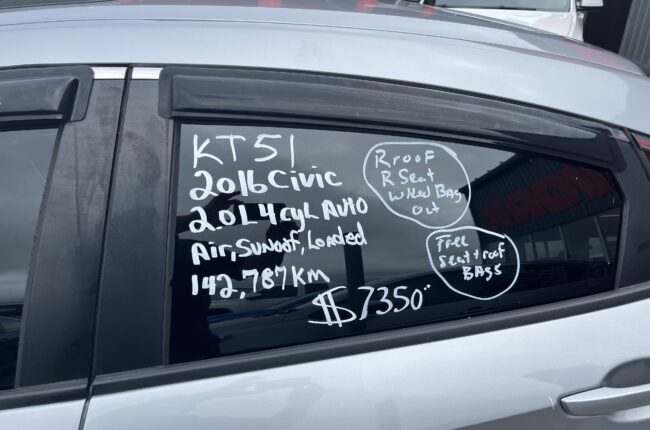 KT51
2016 Civic
2.0L 4 cyl Auto
Air, Sunoof, Loaded
142,787 Km
$7350
R roof
R Seat
Bag
Out
Free
Seat + roof
BAgs